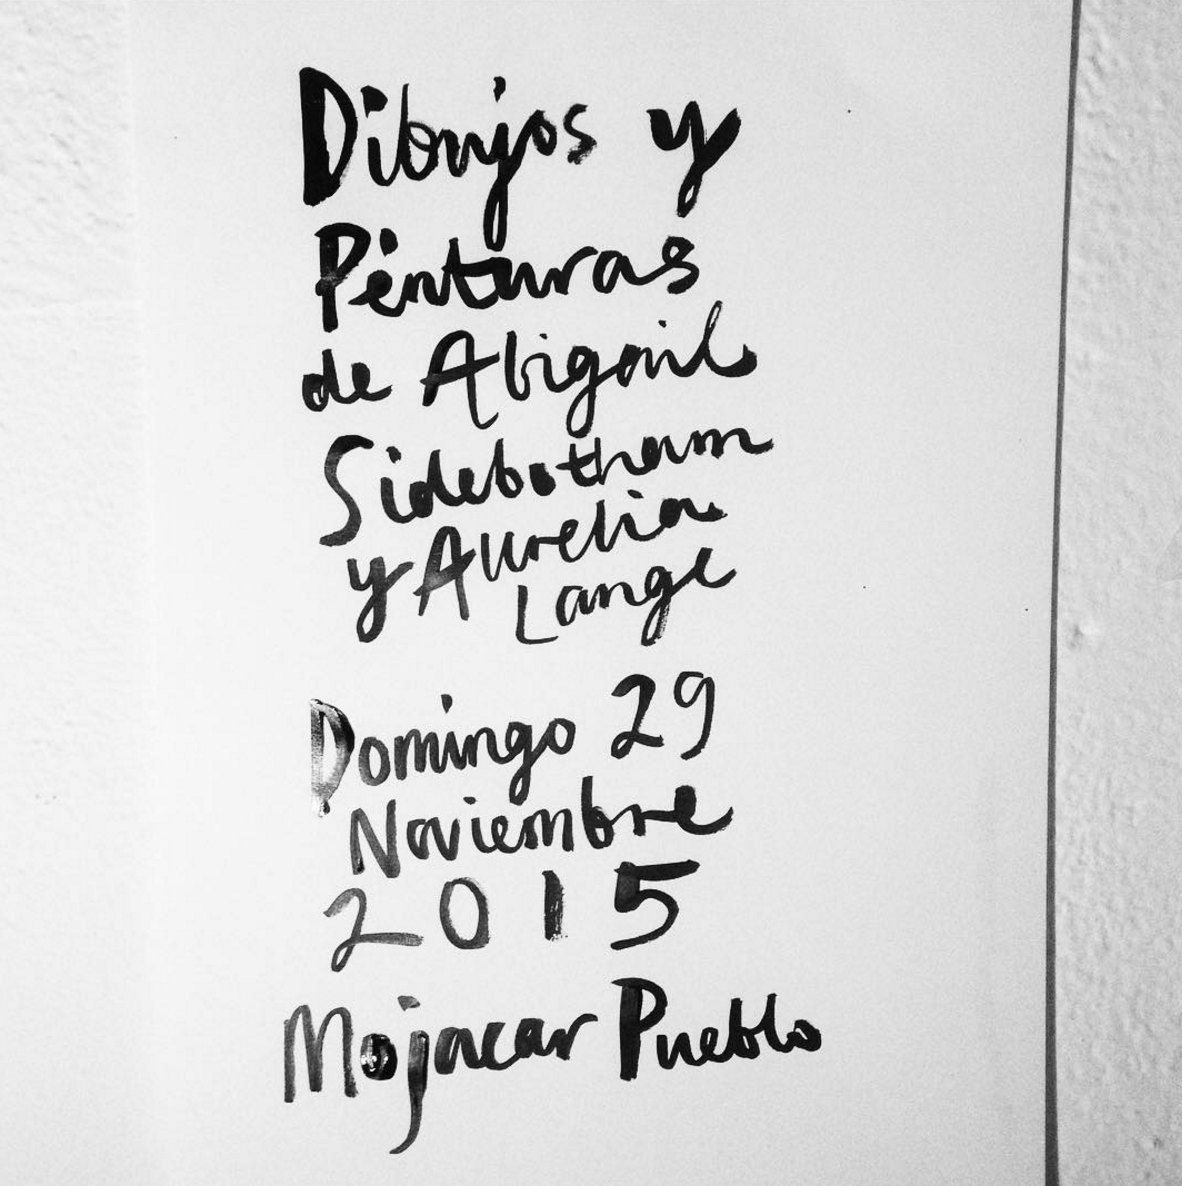 Dibujos y
Pinturas
de Abigail
Sidebotham
y Aurelia
Lange
Domingo 29
Noviembre
2015
Mojacar Pueblo